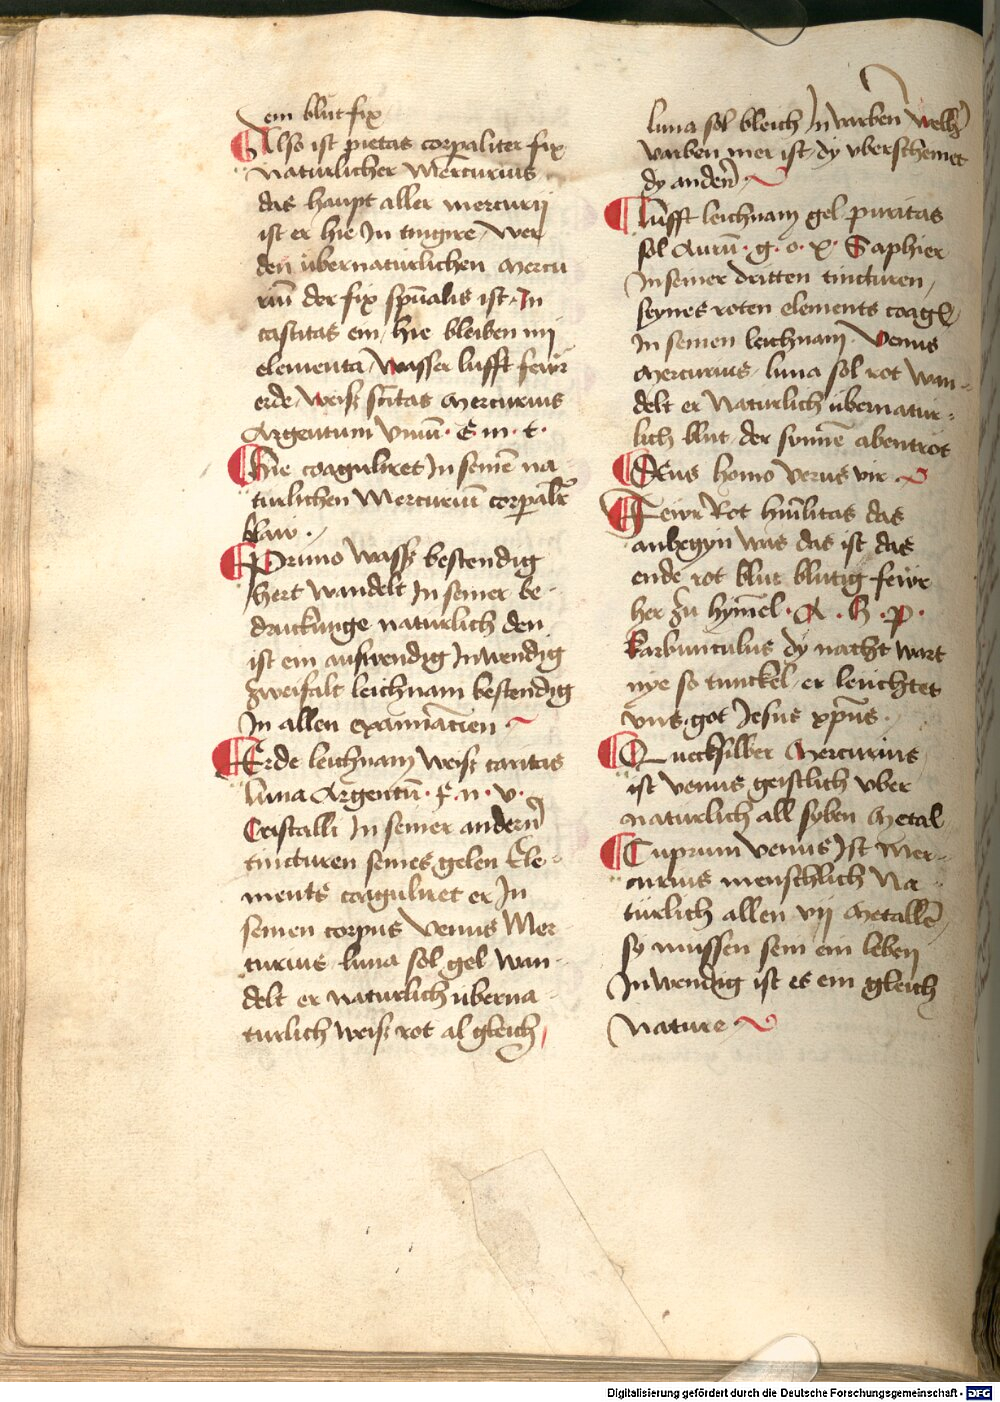 ein blut fix
Also ist pietas corpaliter fix
naturlicher Mercurius
das haupt aller mercurij
ist er hie In tingire wer
den übernaturlichen mercu
riū der fix spūalis ist In
castitas ein hie bleiben iiij
elementa wasser lufft feür
erde weiss Mercurius
Argentum viuū · E · m · t ·
Hie coaguliret In seinē na
turlichen Mercuriū
blaw ·
Primo wass bestendig
hert wandelt In seiner be
druckunge naturlich den
ist ein auswendig Inwendig
zweifalt leichnam bestendig
In allen
Erde leichnam weiss caritas
luna Argentū · f · n · v ·
Cristalli In seiner andern
tincturen seines gelen Ele
ments coaguliret er In
seinen corpus Venus Mer
curius luna sol gel wan
delt er naturlich überna
turlich weiss rot al gleich
luna sol bleich In varben welh
varben mer ist dy vberscheinet
dy andern
Lufft leichnam gel puritas
sol Aurū · g · o · x · Saphier
In seiner dritten tincturen
seynes roten elements coagl
In seinen leichnam Venus
Mercurius luna sol rot wan
delt er naturlich übernatur
lich blut der sunnē abentrot
Deus homo verus vir
Fewr Rot hūilitas das
anbegyn was das ist das
ende rot blut blutig feẅr
her zu hymel · A · h · p ·
karbunculus dy nacht wart
nye so tunckel er leuchtet
vns got Jesus xp̄us ·
Quecksilber Mercurius
ist venus geistlich vber
naturlich all syben Metal
Cuprum venus Ist Mer
curius menschlich Na
türlich allen vij Metallē
sy mussen sein ein leben
Inwendig ist es ein gleich
Nature
Digitalisierung gefördert durch die Deutsche Forschungsgemeinschaft - DFG